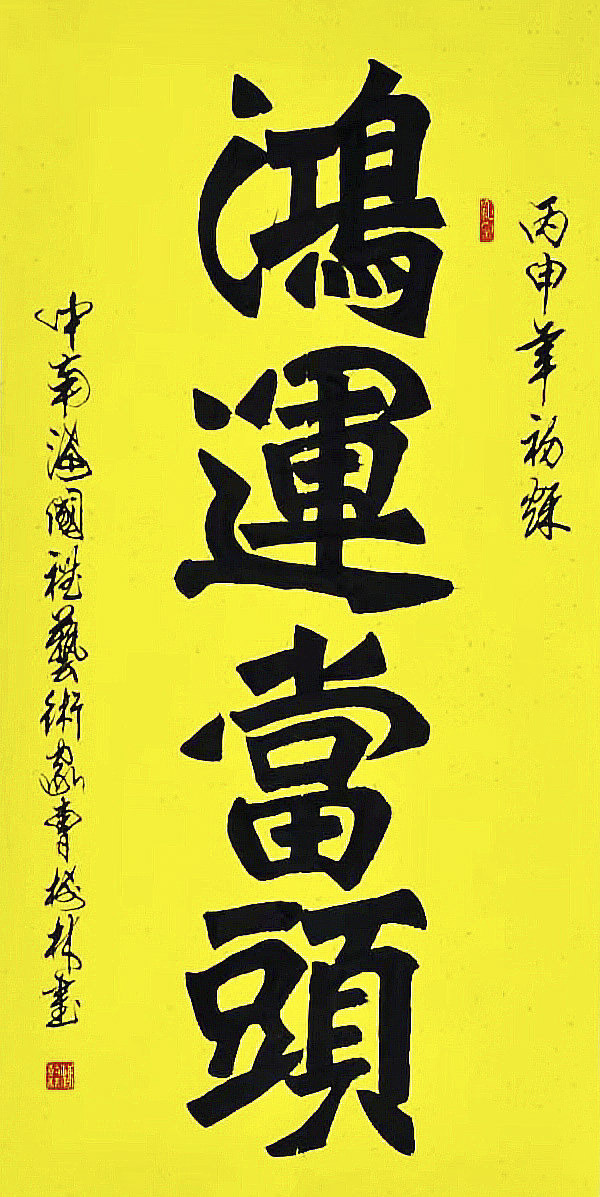 丙申年初
鴻運當頭
中南海國禮藝術家曹林書